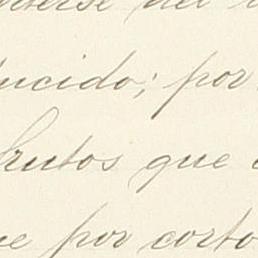 del
ucido; por
frutos que
e por corto